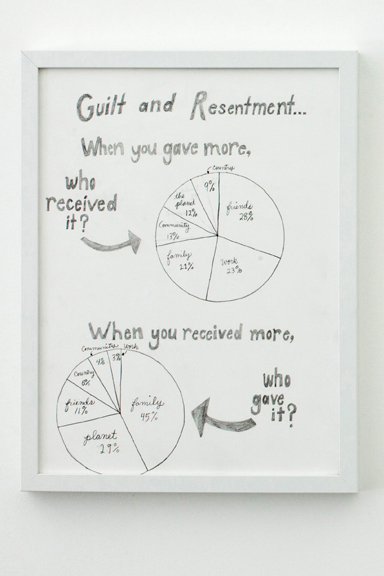 Guilt and Resentment...
When you gave more,
who
received
it?
Country
9%
friends
28%
the
planet
12%
Community
13%
family
21%
Work
23%
When you received more,
Community
Work
4%
3%
Country
8%
friends
11%
family
45%
planet
29%
who
gave
it?